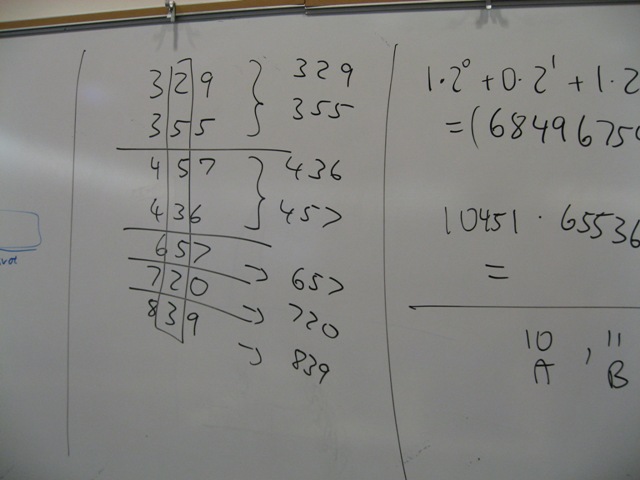 329 } 329
355 355
457 } 436
436 457
657 → 657
720 → 720
839 → 839
1·2⁰ + 0·2¹ + 1·2
= (68496750
10451 · 65536
=
10, 11
A B